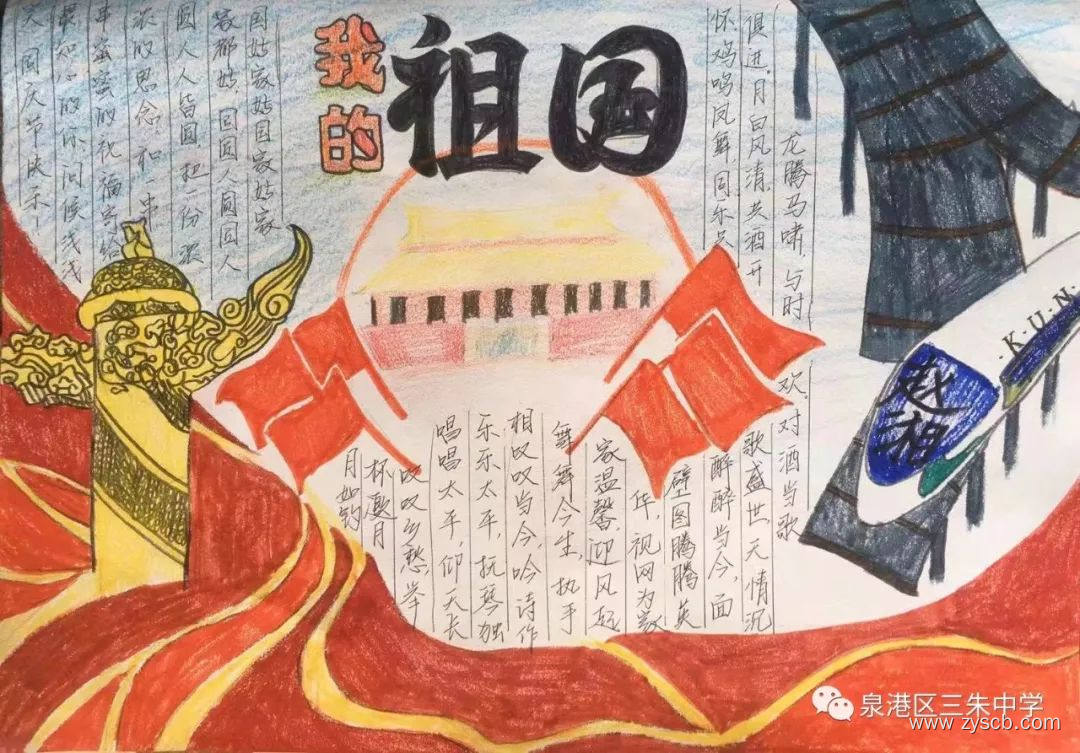 我的
祖国
国姑家姑国家姑家
家都姑，圆圆人圆圆人
圆人人皆圆，把一份深
深的思念和一串
串蜜蜜的祝福寄给
最知心的你，问候浅浅
国庆节快乐！
龙腾马啸，与时
俱进，月白风清，共酒开
怀，鸡鸣凤舞，同乐共
欢，对酒当歌
歌盛世，无情沉
醉醉当今，面
壁图腾腾英
华，视网为家
家温馨，迎风起
舞舞今生，执手
相叹叹当今，吟诗作
乐乐太平，抚琴独
唱唱太平，仰天长
叹叹乡愁，举
杯邀月
月如钩
·K·U·N·
赵湘
泉港区三朱中学
www.zyscb.com